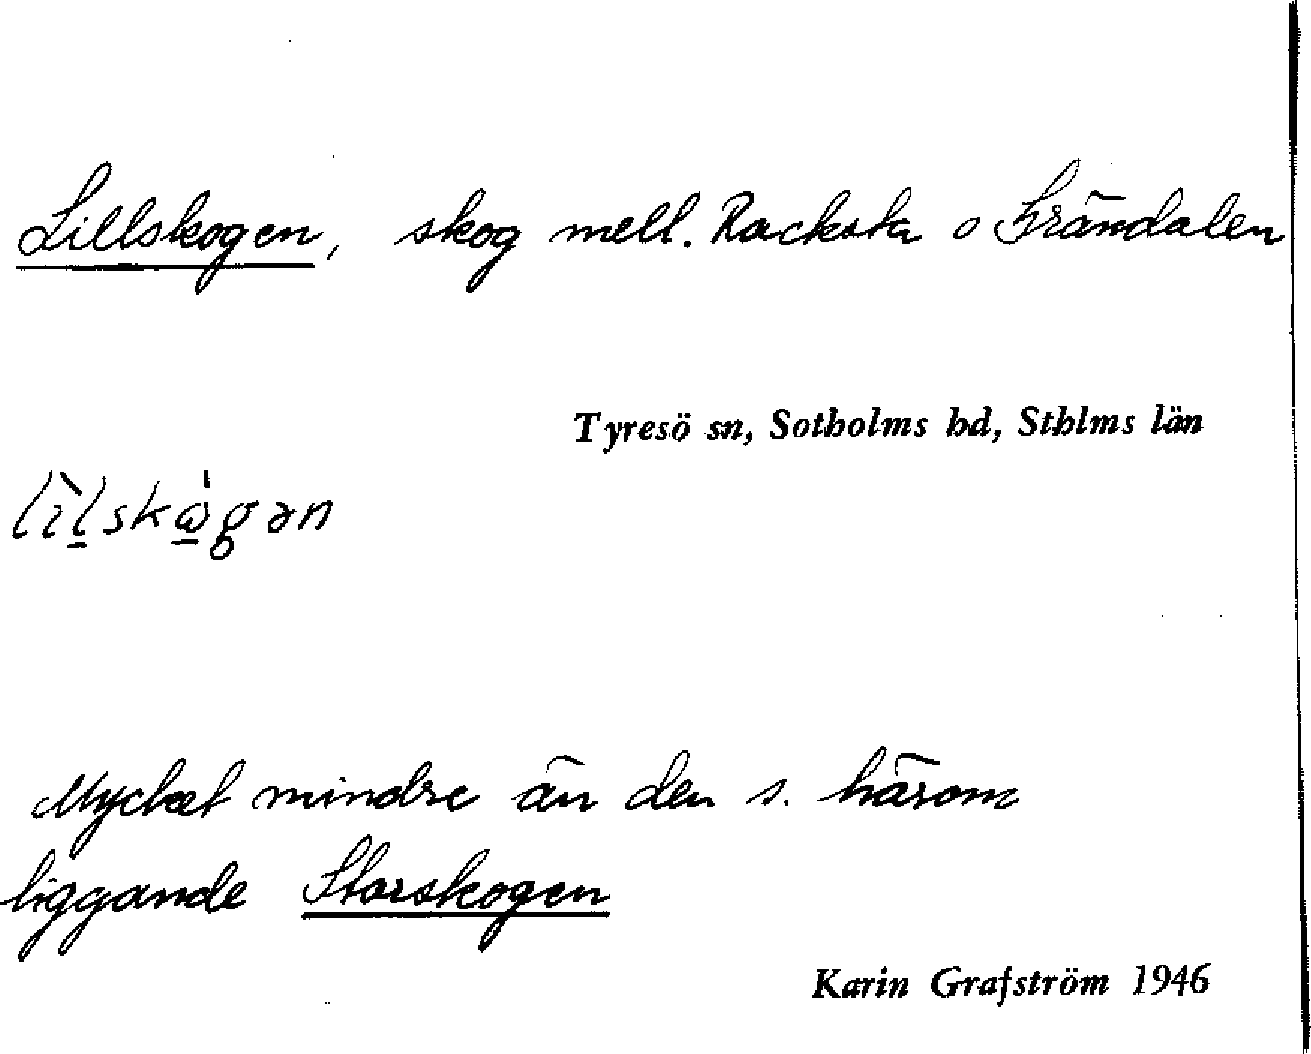 Lillskogen, skog mell. Racksta o Trändalen
Tyresö sn, Sotholms hd, Sthlms län
Mycket mindre än den s. härom
liggande Storskogen
Karin Grafström 1946